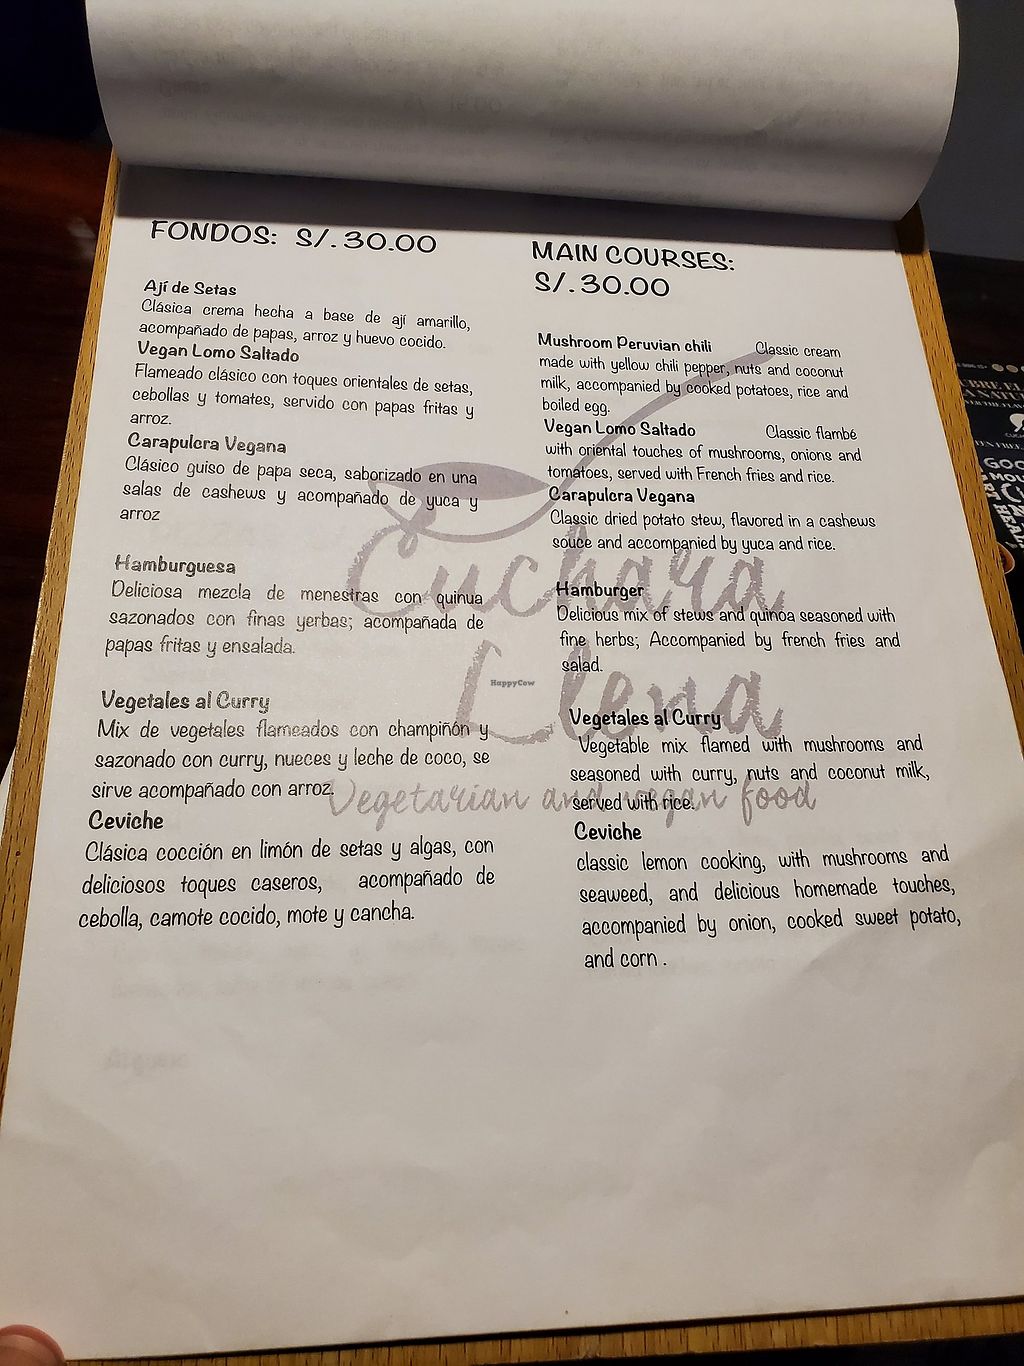 FONDOS: S/.30.00
Ají de Setas
Clásica crema hecha a base de ají amarillo,
acompañado de papas, arroz y huevo cocido.
Vegan Lomo Saltado
Flameado clásico con toques orientales de setas,
cebollas y tomates, servido con papas fritas y
arroz.
Carapulcra Vegana
Clásico guiso de papa seca, saborizado en una
salas de cashews y acompañado de yuca y
arroz
Hamburguesa
Deliciosa mezcla de menestras con quinua
sazonados con finas yerbas; acompañada de
papas fritas y ensalada.
Vegetales al Curry
Mix de vegetales flameados con champiñón y
sazonado con curry, nueces y leche de coco, se
sirve acompañado con arroz.
Ceviche
Clásica cocción en limón de setas y algas, con
deliciosos toques caseros, acompañado de
cebolla, camote cocido, mote y cancha.
MAIN COURSES:
S/.30.00
Mushroom Peruvian chili Classic cream
made with yellow chili pepper, nuts and coconut
milk, accompanied by cooked potatoes, rice and
boiled egg.
Vegan Lomo Saltado Classic flambé
with oriental touches of mushrooms, onions and
tomatoes, served with French fries and rice.
Carapulcra Vegana
Classic dried potato stew, flavored in a cashews
souce and accompanied by yuca and rice.
Hamburger
Delicious mix of stews and quinoa seasoned with
fine herbs; Accompanied by french fries and
salad.
Vegetales al Curry
Vegetable mix flamed with mushrooms and
seasoned with curry, nuts and coconut milk,
served with rice.
Ceviche
classic lemon cooking, with mushrooms and
seaweed, and delicious homemade touches,
accompanied by onion, cooked sweet potato,
and corn .
Cuchara
Llena
Vegetarian and vegan food
HappyCow